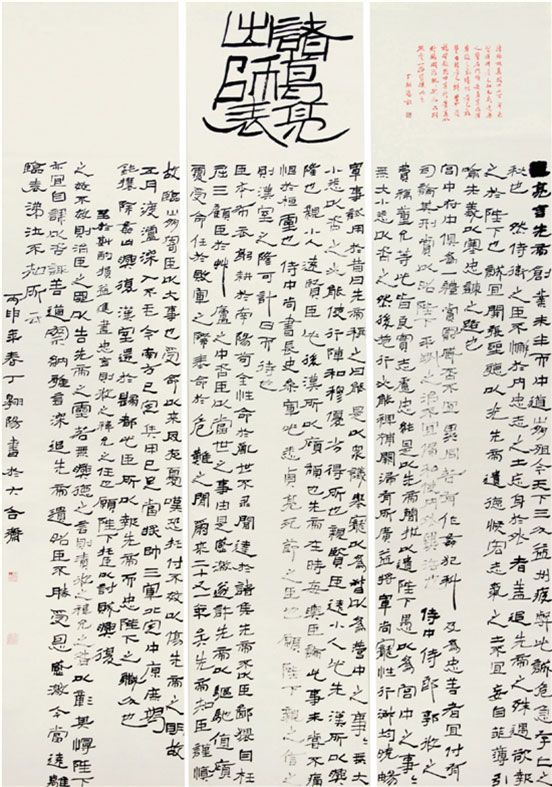 諸葛亮
出師表
臣亮言先帝創業未半而中道崩殂今天下三分益州疲弊此誠危急存亡之
秋也 然侍衛之臣不懈於內忠志之士忘身於外者蓋追先帝之殊遇欲報
之於陛下也誠宜開張聖聽以光先帝遺德恢宏志士之氣不宜妄自菲薄引
喻失義以塞忠諫之路也
宮中府中俱為一體陟罰臧否不宜異同若有作姦犯科 及為忠善者宜付有
司論其刑賞以昭陛下平明之治不宜偏私使內外異法也 侍中侍郎郭攸之
費禕董允等此皆良實志慮忠純是以先帝簡拔以遺陛下愚以為宮中之事事
無大小悉以咨之然後施行必能裨補闕漏有所廣益將軍向寵性行淑均曉暢
軍事試用於昔日先帝稱之曰能是以眾議舉寵以為督愚以為營中之事事無大
小悉以咨之必能使行陣和穆優劣得所也親賢臣遠小人此先漢所以興
隆也親小人遠賢臣此後漢所以傾頹也先帝在時每與臣論此事未嘗不痛
恨於桓靈也 侍中尚書長史參軍此悉貞亮死節之臣也願陛下親之信之
則漢室之隆可計日而待也
臣本布衣躬耕於南陽苟全性命於亂世不求聞達於諸侯先帝不以臣卑鄙猥自枉
屈三顧臣於草廬之中咨臣以當世之事由是感激遂許先帝以驅馳值傾
覆受命任於敗軍之際奉命於危難之間爾來二十又一年矣先帝知臣謹慎
故臨崩寄臣以大事也受命以來夙夜憂嘆恐託付不效以傷先帝之明故
五月渡瀘深入不毛今南方已定兵甲已足當獎帥三軍北定中原庶竭
駑鈍攘除姦凶興復漢室還於舊都此臣所以報先帝而忠陛下之職分也
至於斟酌損益進盡忠言則攸之禕允之任也願陛下托臣以討賊興復
之效不效則治臣之罪以告先帝之靈若無興德之言則責攸之禕允之咎以彰其慢陛下
亦宜自課以咨諏善道察納雅言深追先帝遺詔臣不勝受恩感激今當遠離
臨表涕泣不知所云
丙申年春丁翔陽書於大合齋